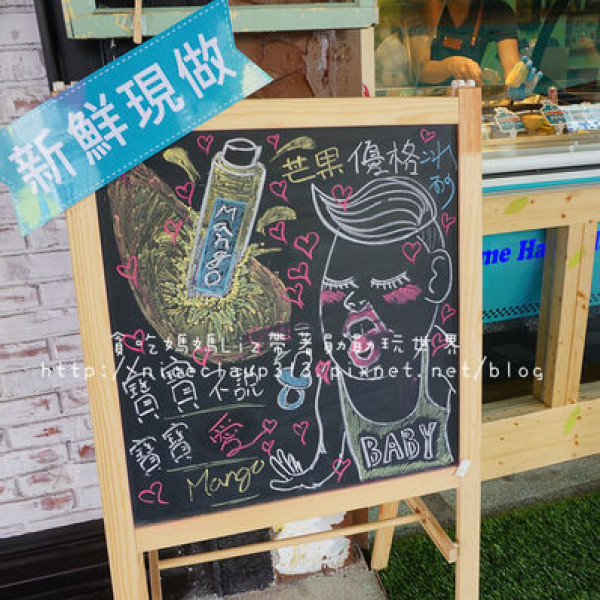 新鮮現做
芒果優格冰沙
Mango
貪吃媽媽Liz帶著勛勛玩世界
http://nineclaup313.pixnet.net/blog
寶寶不說
寶寶愛
Mango
BABY
me Ha